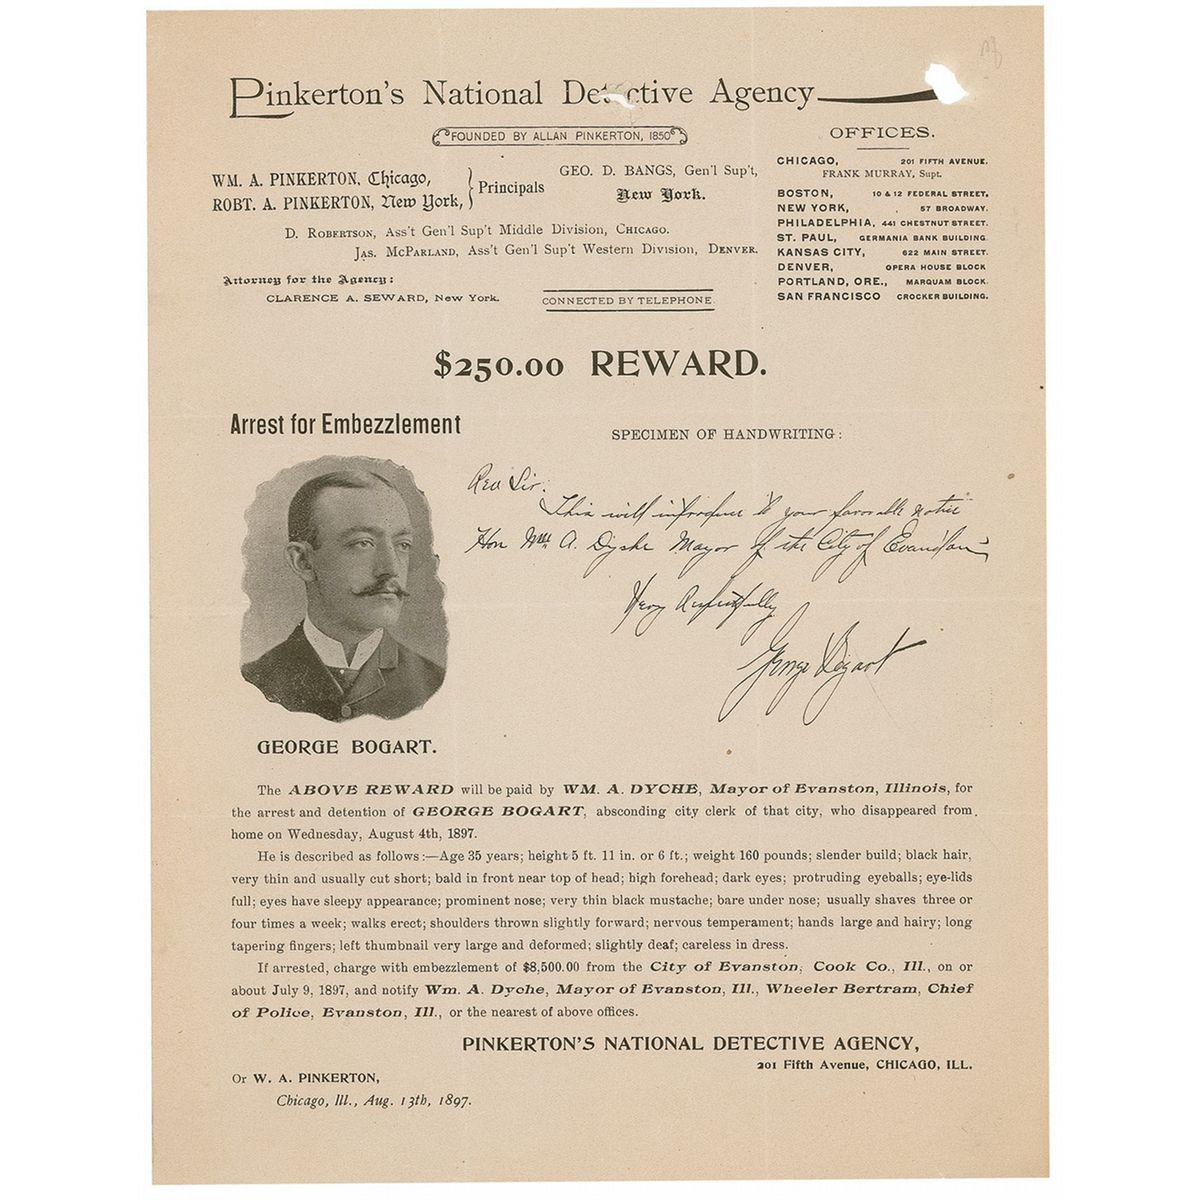 Pinkerton's National Detective Agency
FOUNDED BY ALLAN PINKERTON, 1850
WM. A. PINKERTON, Chicago,
ROBT. A. PINKERTON, New York,
Principals
GEO. D. BANGS, Gen'l Sup't,
New York.
D. ROBERTSON, Ass't Gen'l Sup't Middle Division, CHICAGO.
JAS. MCPARLAND, Ass't Gen'l Sup't Western Division, DENVER.
Attorney for the Agency:
CLARENCE A. SEWARD, New York.
CONNECTED BY TELEPHONE.
OFFICES.
CHICAGO, 201 FIFTH AVENUE.
FRANK MURRAY, Supt.
BOSTON, 10 & 12 FEDERAL STREET.
NEW YORK, 57 BROADWAY.
PHILADELPHIA, 441 CHESTNUT STREET.
ST. PAUL, GERMANIA BANK BUILDING.
KANSAS CITY, 622 MAIN STREET.
DENVER, OPERA HOUSE BLOCK
PORTLAND, ORE., MARQUAM BLOCK.
SAN FRANCISCO CROCKER BUILDING.
$250.00 REWARD.
Arrest for Embezzlement
SPECIMEN OF HANDWRITING:
Rev Sir:
This will introduce to your favorable notice
Hon Wm A. Dyche Mayor of the City of Evanston
Very Respectfully
George Bogart
GEORGE BOGART.
The ABOVE REWARD will be paid by WM. A. DYCHE, Mayor of Evanston, Illinois, for
the arrest and detention of GEORGE BOGART, absconding city clerk of that city, who disappeared from
home on Wednesday, August 4th, 1897.
He is described as follows:—Age 35 years; height 5 ft. 11 in. or 6 ft.; weight 160 pounds; slender build; black hair,
very thin and usually cut short; bald in front near top of head; high forehead; dark eyes; protruding eyeballs; eye-lids
full; eyes have sleepy appearance; prominent nose; very thin black mustache; bare under nose; usually shaves three or
four times a week; walks erect; shoulders thrown slightly forward; nervous temperament; hands large and hairy; long
tapering fingers; left thumbnail very large and deformed; slightly deaf; careless in dress.
If arrested, charge with embezzlement of $8,500.00 from the City of Evanston, Cook Co., Ill., on or
about July 9, 1897, and notify Wm. A. Dyche, Mayor of Evanston, Ill., Wheeler Bertram, Chief
of Police, Evanston, Ill., or the nearest of above offices.
PINKERTON'S NATIONAL DETECTIVE AGENCY,
201 Fifth Avenue, CHICAGO, ILL.
Or W. A. PINKERTON,
Chicago, Ill., Aug. 13th, 1897.